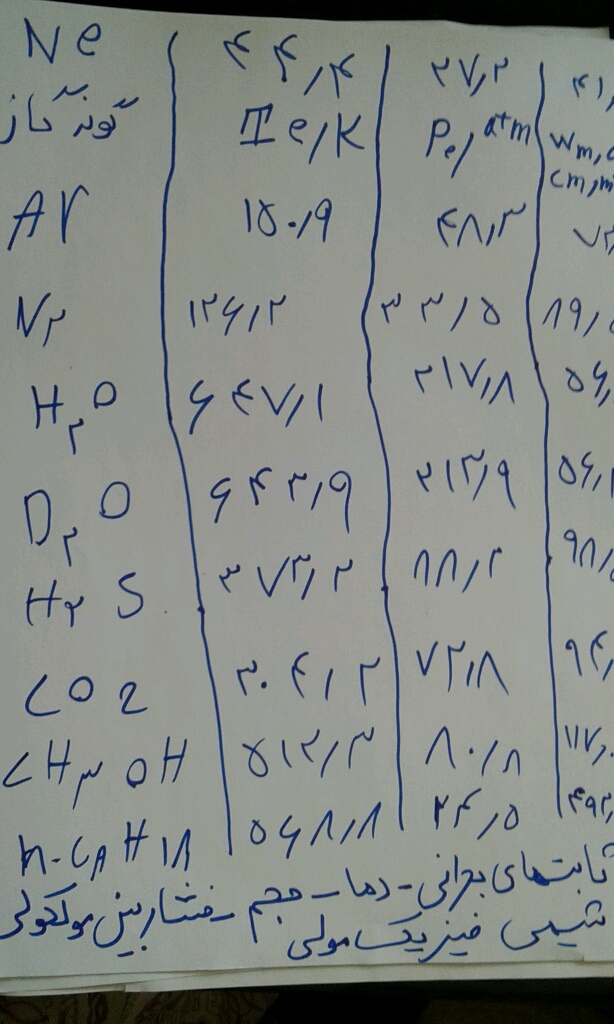 Ne ۴۴,۴ ۲۷,۲ ۴۱,
گونه گاز Tc/K Pc/atm Vm,c cm,m
Ar ۱۵۰,۹ ۴۸,۳ ۷۲,
N۲ ۱۲۶,۲ ۳۳,۵ ۸۹,
H۲O ۶۴۷,۱ ۲۱۷,۸ ۵۶,
D۲O ۶۴۳,۹ ۲۱۳,۹ ۵۶,
H۲S ۳۷۳,۲ ۸۸,۲ ۹۸,
CO2 ۳۰۴,۲ ۷۲,۸ ۹۴,
CH۳OH ۵۱۲,۳ ۸۰,۸ ۱۱۷,
n-C۸H۱۸ ۵۶۸,۸ ۲۴,۵ ۴۹۲,
ثابت‌های بحرانی - دما - حجم - فشار بین مولکولی
شیمی فیزیک مولی